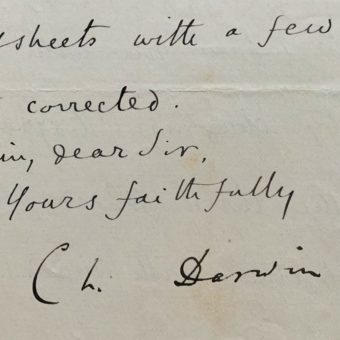 sheets with a few
corrected.
in, dear Sir,
Yours faithfully
Ch. Darwin